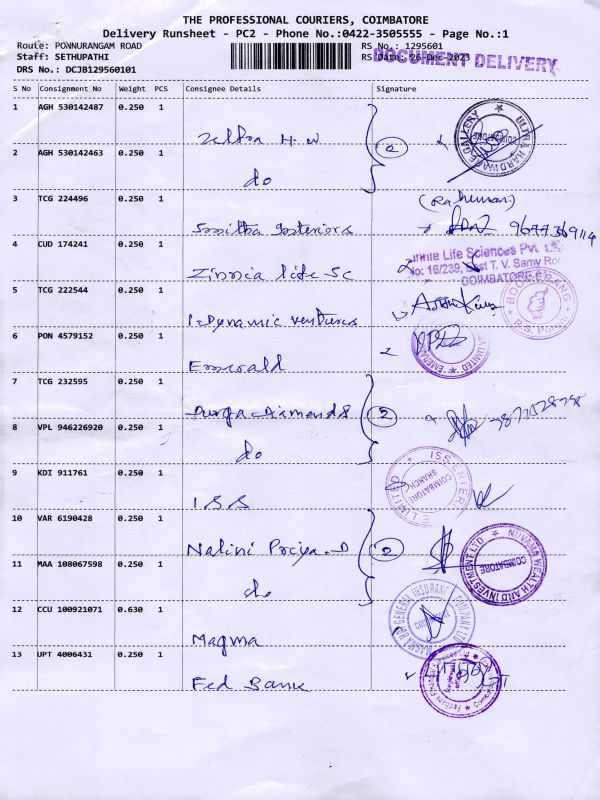 THE PROFESSIONAL COURIERS, COIMBATORE
Delivery Runsheet - PC2 - Phone No.:0422-3505555 - Page No.:1
Route: PONNURANGAM ROAD RS No.: 1295601
Staff: SETHUPATHI RS Date: 26-Dec-2023
DOCUMENT DELIVERY
DRS No.: DCJB129560101
S No Consignment No Weight PCS Consignee Details Signature
1 AGH 530142487 0.250 1
ULTRA HARDWARE GALLERY
2 AGH 530142463 0.250 1
do
3 TCG 224496 0.250 1 (Rahuman)
4 CUD 174241 0.250 1
Life Sciences Pvt Ltd
No: 16/239, T. V. Samy Ro
COIMBATORE
Zinnia life Sc
5 TCG 222544 0.250 1
BOOMERANG
R.S. Puram
I-Dynamic ventures
6 PON 4579152 0.250 1
Emerald
7 TCG 232595 0.250 1
Durga Diamonds 2
8 VPL 946226920 0.250 1
do
9 KDI 911761 0.250 1
ISS
COIMBATORE BRANCH
10 VAR 6190428 0.250 1
Nalini Priya. D 2
NUVAMA WEALTH AND INVESTMENT LTD
COIMBATORE
11 MAA 108067598 0.250 1
do
12 CCU 100921071 0.630 1
MAGMA HDI GENERAL INSURANCE COMPANY LTD
Magma
13 UPT 4006431 0.250 1
Fed Bank